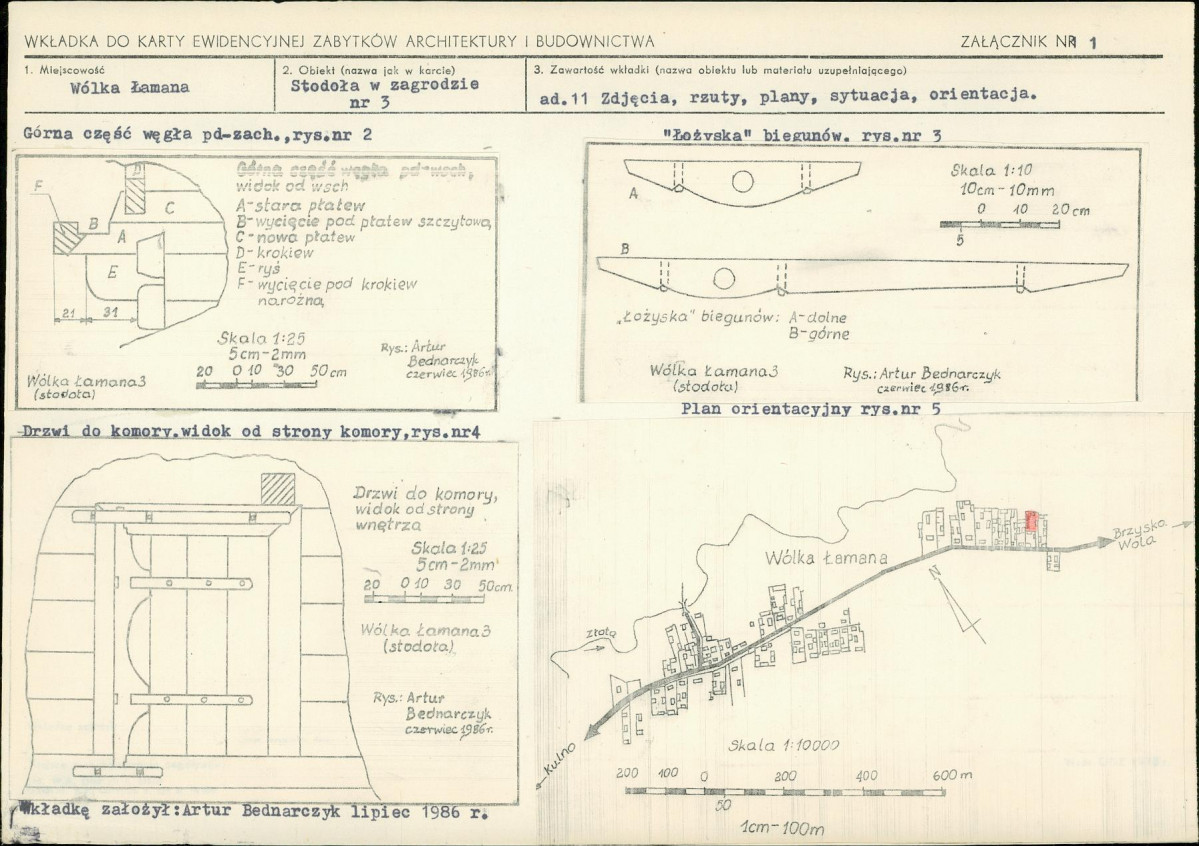 WKŁADKA DO KARTY EWIDENCYJNEJ ZABYTKÓW ARCHITEKTURY I BUDOWNICTWA
ZAŁĄCZNIK NR 1
1. Miejscowość
Wólka Łamana
2. Obiekt (nazwa jak w karcie)
Stodoła w zagrodzie
nr 3
3. Zawartość wkładki (nazwa obiektu lub materiału uzupełniającego)
ad.11 Zdjęcia, rzuty, plany, sytuacja, orientacja.
Górna część węgła pd-zach.,rys.nr 2
Górna część węgła pd-wsch,
widok od wsch
A-stara płatew
B-wycięcie pod płatew szczytową,
C-nowa płatew
D-krokiew
E-ryś
F-wycięcie pod krokiew
narożną
F
D
C
B
A
E
21
31
Skala 1:25
5cm-2mm
20 0 10 30 50 cm
Rys.: Artur
Bednarczyk
czerwiec 1986r.
Wólka Łamana 3
(stodoła)
"Łożyska" biegunów. rys.nr 3
A
Skala 1:10
10cm-10mm
0 10 20 cm
5
B
„Łożyska" biegunów: A-dolne
B-górne
Wólka Łamana 3
(stodoła)
Rys.: Artur Bednarczyk
czerwiec 1986r.
Drzwi do komory.widok od strony komory,rys.nr4
Drzwi do komory,
widok od strony
wnętrza
Skala 1:25
5cm-2mm
20 0 10 30 50cm.
Wólka Łamana 3
(stodoła)
Rys.: Artur
Bednarczyk
czerwiec 1986r.
Plan orientacyjny rys.nr 5
Brzyska
Wola
Wólka Łamana
N
złota
Kulno
Skala 1:10000
200 100 0 200 400 600 m
50
1cm-100m
Wkładkę założył:Artur Bednarczyk lipiec 1986 r.